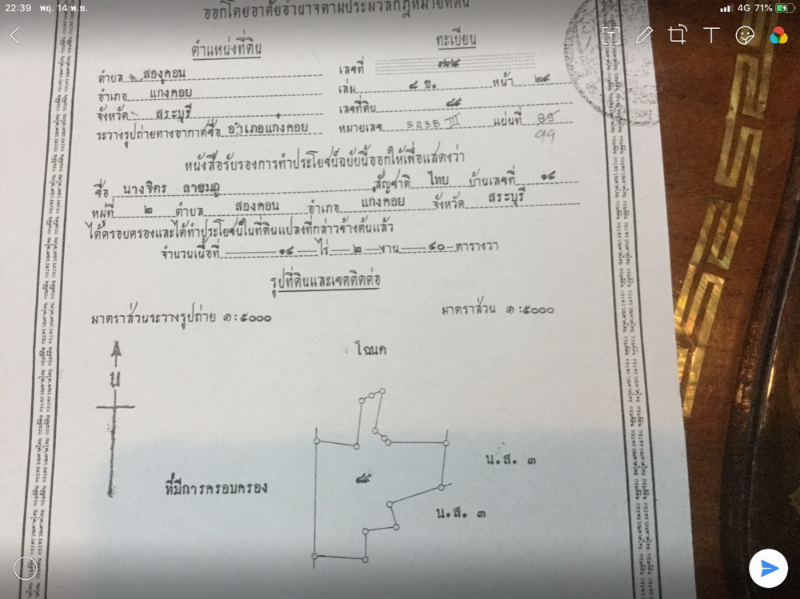 22:39 พฤ. 14 พ.ย.
4G 71%
ออกโดยอาศัยอำนาจตามประมวลกฎหมายที่ดิน
ตำแหน่งที่ดิน
ทะเบียน
ตำบล สองคอน
เลขที่ ๗๗๔
อำเภอ แกงคอย
เล่ม ๘ ข. หน้า ๒๔
จังหวัด สระบุรี
เลขที่ดิน ๘๘
ระวางรูปถ่ายทางอากาศชื่อ อำเภอแกงคอย
หมายเลข 5238 III แผ่นที่
หนังสือรับรองการทำประโยชน์ฉบับนี้ออกให้เพื่อแสดงว่า
ชื่อ นางจิตร สัญชาติ ไทย บ้านเลขที่ ๑๔
หมู่ที่ ๒ ตำบล สองคอน อำเภอ แกงคอย จังหวัด สระบุรี
ได้ครอบครองและได้ทำประโยชน์ในที่ดินแปลงที่กล่าวข้างต้นแล้ว
จำนวนเนื้อที่ ๑๔ ไร่ ๒ งาน ๔๐ ตารางวา
รูปที่ดินและเขตติดต่อ
มาตราส่วนระวางรูปถ่าย ๑:๕๐๐๐
มาตราส่วน ๑:๕๐๐๐
โฉนด
น
น.ส. ๓
ที่มีการครอบครอง
๘๘
น.ส. ๓